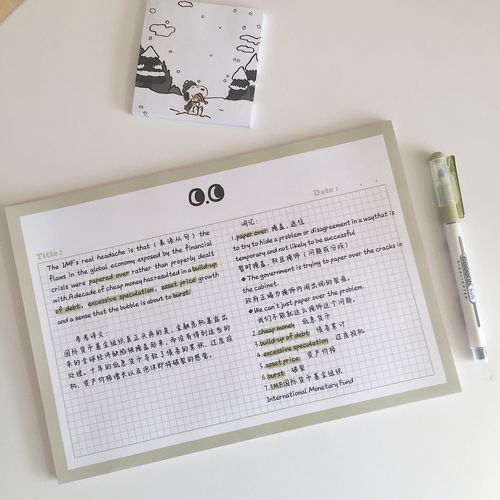 Title :
Date :
The IMF's real headache is that (表语从句) the
flaws in the global economy exposed by the financial
crises were papered over rather than properly dealt
with. A decade of cheap money has resulted in a build-up
of debt, excessive speculation, asset price growth
and a sense that the bubble is about to burst.
参考译文:
国际货币基金组织真正头疼的是,金融危机暴露出
来的全球经济缺陷被掩盖起来,却没有得到适当的
处理。十年的低息货币导致了债务的累积、过度投
机、资产价格增长以及泡沫即将破裂的感觉。
词汇:
1. paper over 掩盖,遮住
to try to hide a problem or disagreement in a way that is
temporary and not likely to be successful
暂时掩盖,权且掩饰(问题或分歧)
◆The government is trying to paper over the cracks in
the cabinet.
府正竭力掩饰内阁出现的裂痕。
◆We can't just paper over the problem.
我们不能就这么掩饰这个问题。
2. cheap money 低息货币
3. build-up of debt 债务累计
4. excessive speculation 过度投机
5. asset price 资产价格
6. burst 破裂
7. IMF 国际货币基金组织
International Monetary Fund